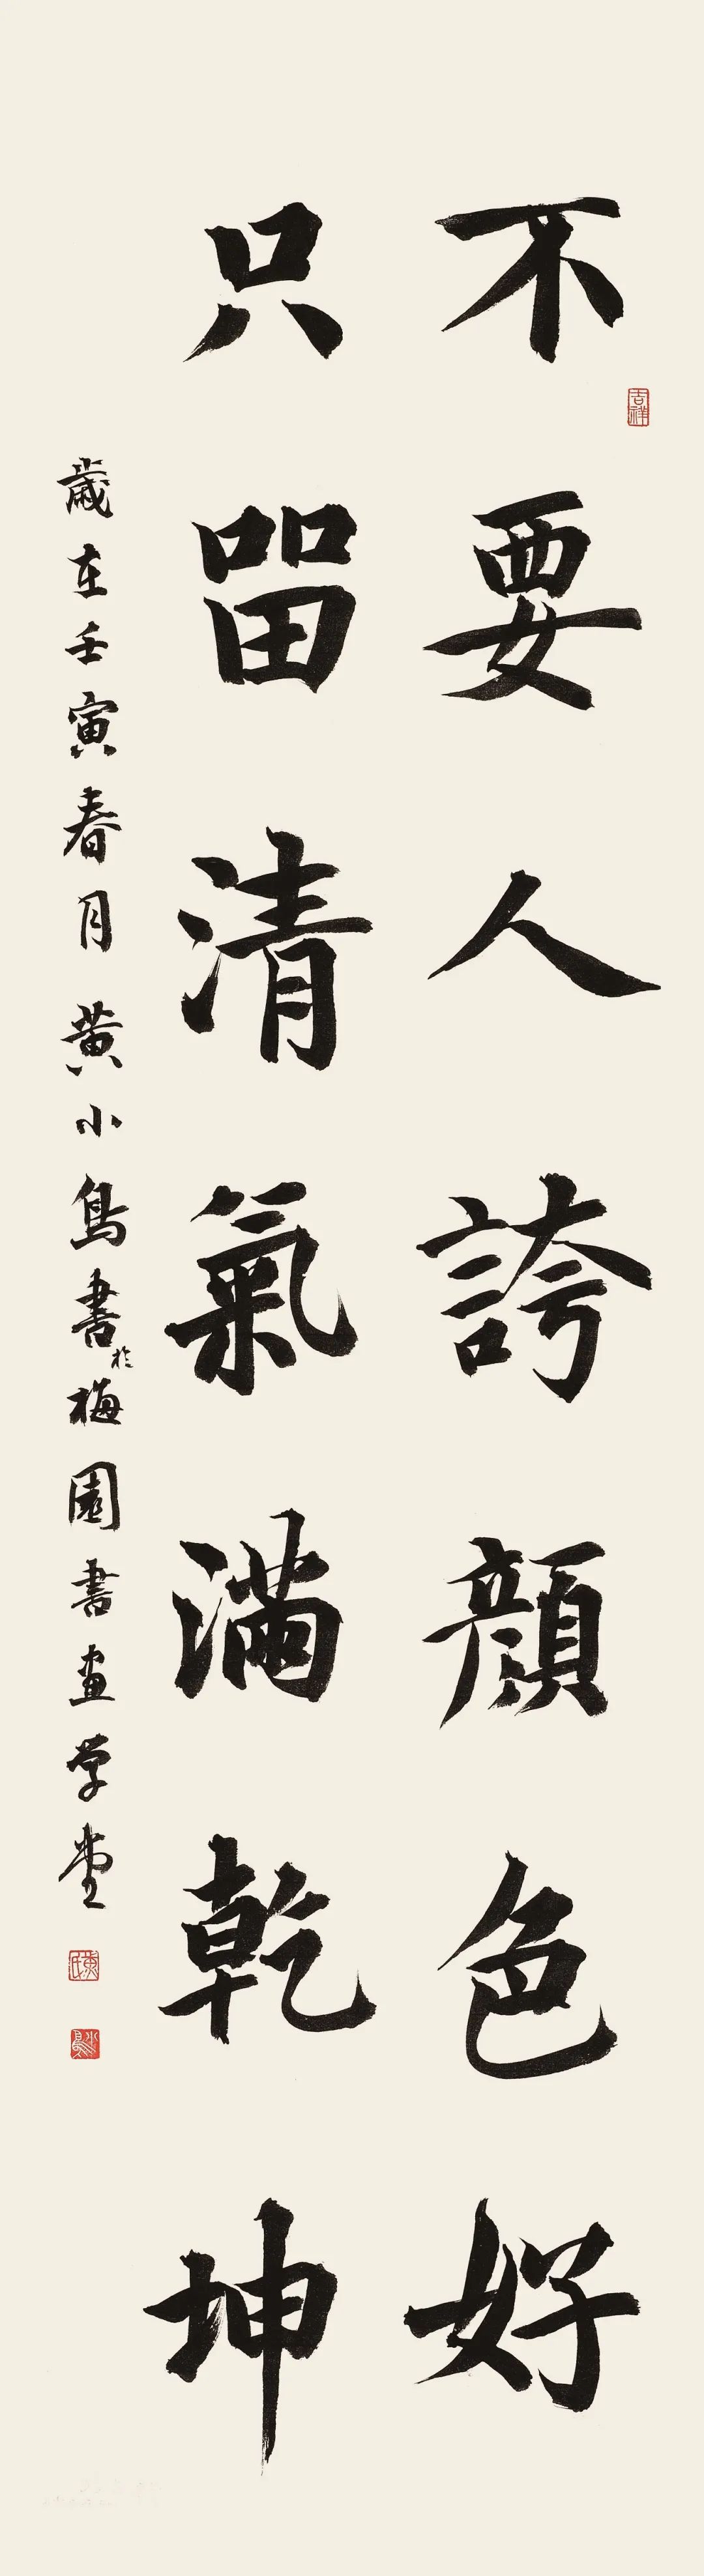 不要人誇顔色好
只留清氣滿乾坤
歲在壬寅春月黄小鳥書於梅園書画学堂
吉祥
黄氏